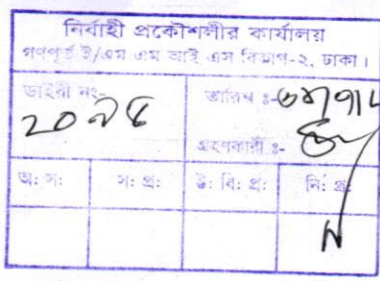 নির্বাহী প্রকৌশলীর কার্যালয়
গণপূর্ত ই/এম এম আই এস বিভাগ-২, ঢাকা।
ডাইরী নং-
তারিখ ঃ-
২০৯৫
গ্রহণকারী ঃ-
অঃ সঃ
সঃ প্রঃ
উঃ বিঃ প্রঃ
নিঃ প্রঃ